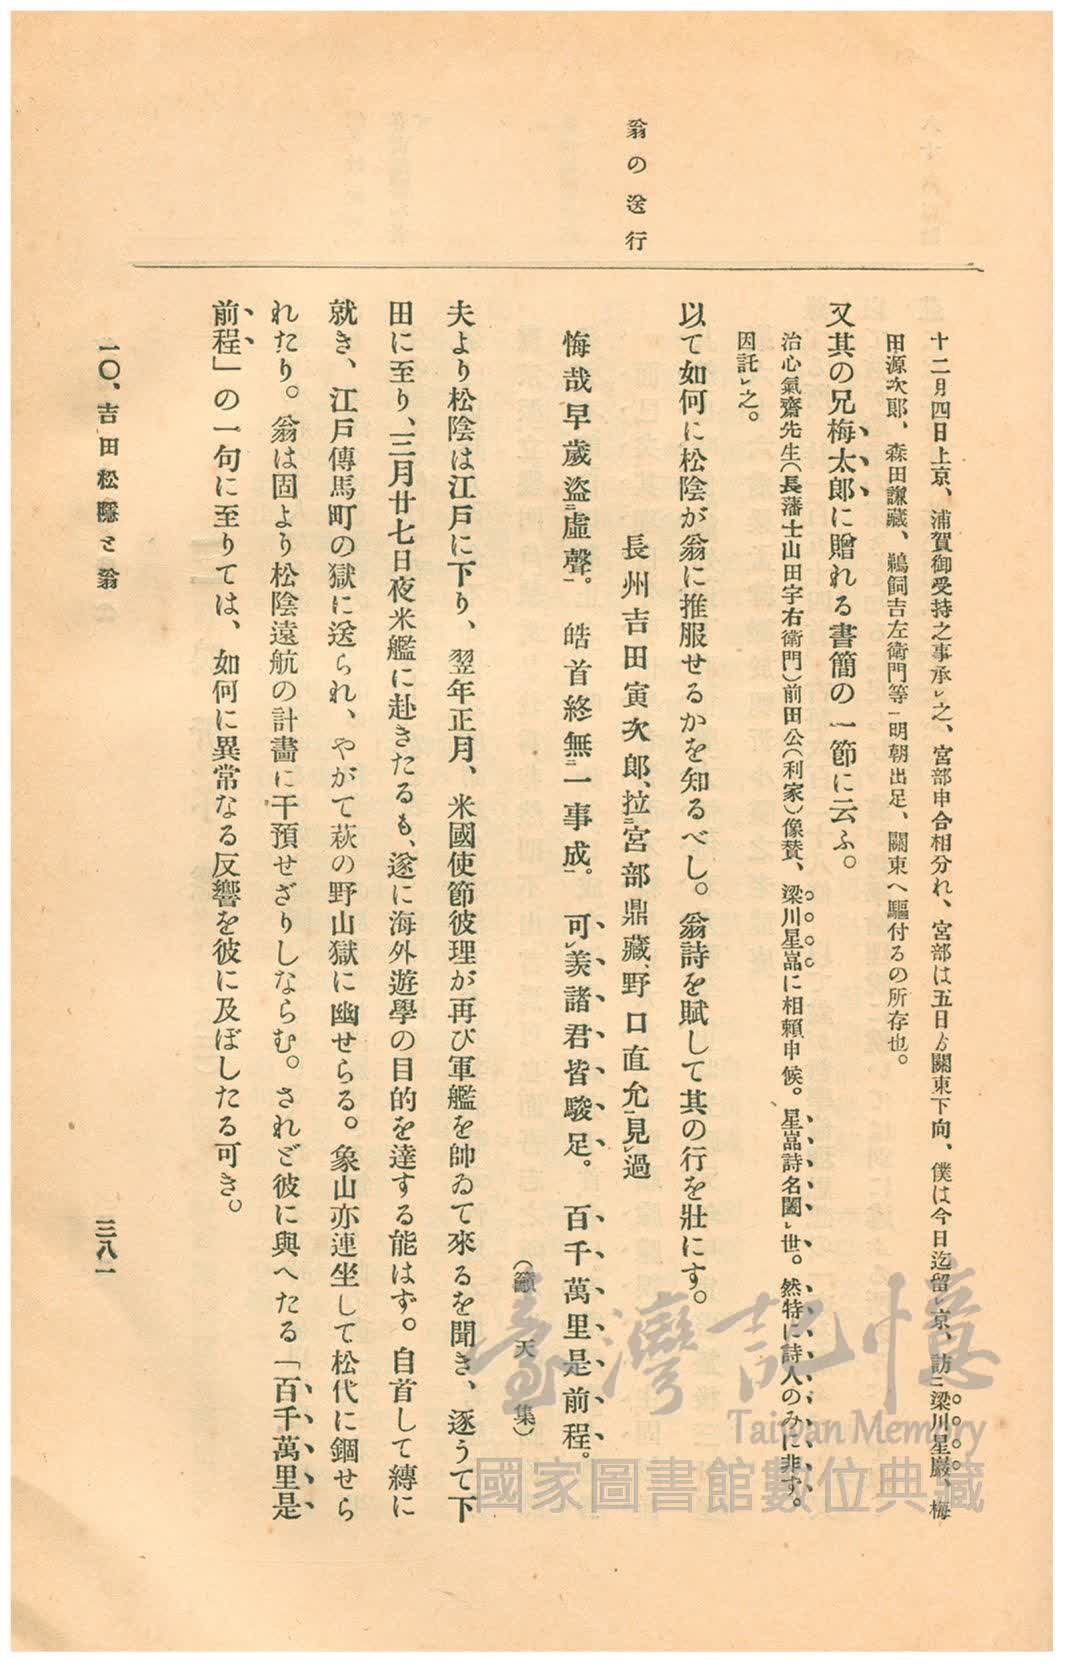 翁の送行
十二月四日上京、浦賀御受持之事承レ之、宮部申合相分れ、宮部は五日ゟ關東下向、僕は今日迄留レ京、訪二梁川星巖、梅
田源次郎、森田謙藏、鵜飼吉左衛門等一明朝出足、關東へ驅付るの所存也。
又其の兄梅太郎に贈れる書簡の一節に云ふ。
治心氣齋先生（長藩士山田宇右衛門）前田公（利家）像賛、梁川星嵓に相賴申候。星嵓詩名闔レ世。然特に詩人のみに非す。
因託レ之。
以て如何に松陰が翁に推服せるかを知るべし。翁詩を賦して其の行を壯にす。
長州吉田寅次郎、拉二宮部鼎藏、野口直允一見レ過
悔哉早歲盜二虛聲一。皓首終無二一事成一。可レ羨諸君皆駿足。百千萬里是前程。
（籲天集）
夫より松陰は江戸に下り、翌年正月、米國使節彼理が再び軍艦を帥ゐて來るを聞き、逐うて下
田に至り、三月廿七日夜米艦に赴きたるも、遂に海外遊學の目的を達する能はず。自首して縛に
就き、江戸傳馬町の獄に送られ、やがて萩の野山獄に幽せらる。象山亦連坐して松代に錮せら
れたり。翁は固より松陰遠航の計畫に干預せざりしならむ。されど彼に與へたる「百千萬里是
前程」の一句に至りては、如何に異常なる反響を彼に及ぼしたる可き。
一〇、吉田松陰と翁
三八一
臺灣記憶
Taiwan Memory
國家圖書館數位典藏